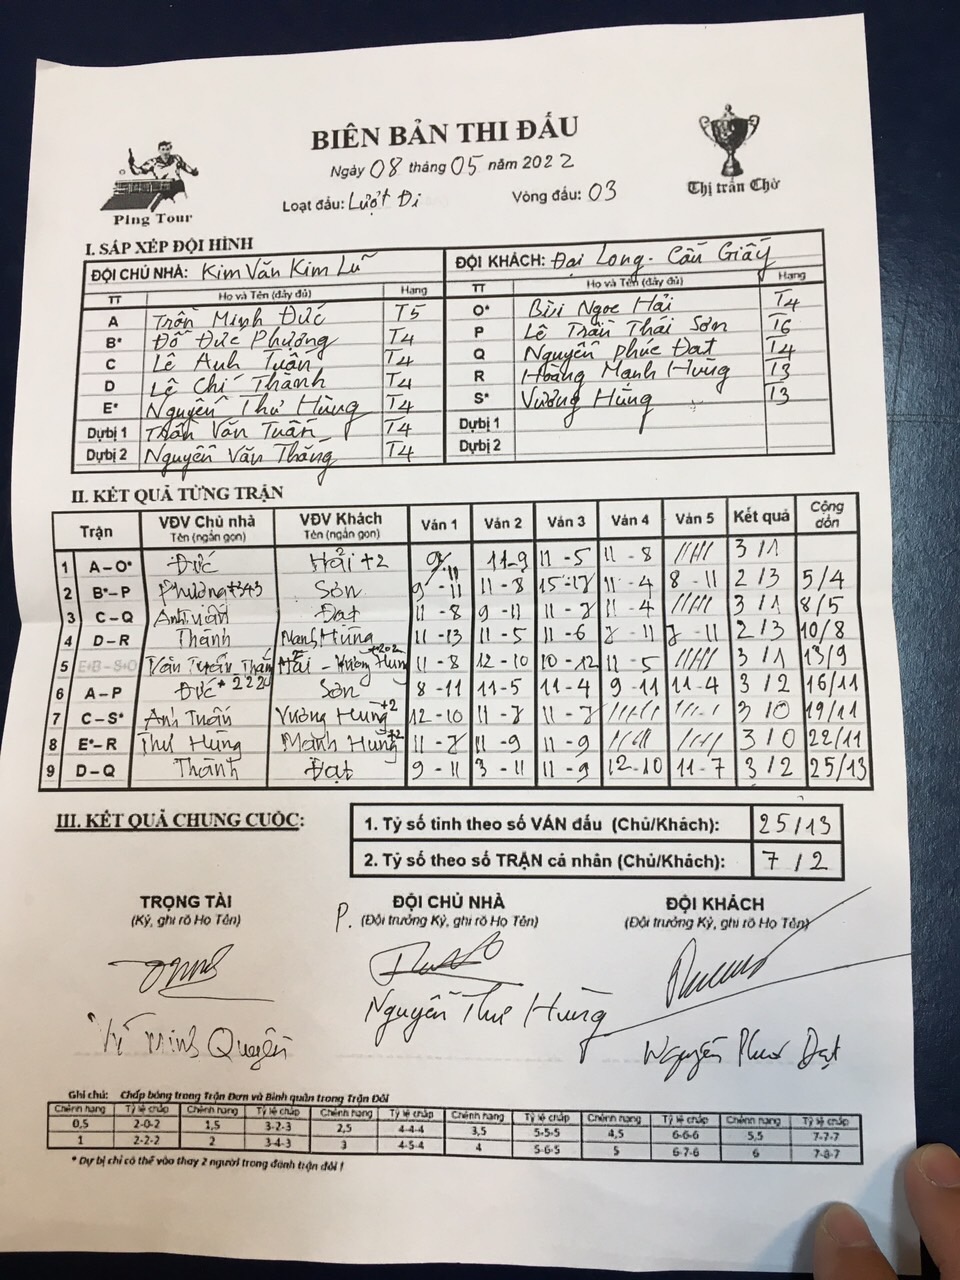 BIÊN BẢN THI ĐẤU
Ngày 08 tháng 05 năm 2022
Loạt đấu: Lượt Đi Vòng đấu: 03
Ping Tour
Thị trấn Chờ
I. SẮP XẾP ĐỘI HÌNH
ĐỘI CHỦ NHÀ: Kim Văn Kim Lũ
TT Họ và Tên (đầy đủ) Hạng
A Trần Minh Đức T5
B* Đỗ Đức Phượng T4
C Lê Anh Tuấn T4
D Lê Chí Thành T4
E* Nguyễn Thư Hùng T4
Dự bị 1 Trần Văn Tuấn T4
Dự bị 2 Nguyễn Văn Thắng T4
ĐỘI KHÁCH: Đại Long - Cầu Giấy
TT Họ và Tên (đầy đủ) Hạng
O* Bùi Ngọc Hải T4
P Lê Trần Thái Sơn T6
Q Nguyễn Phúc Đạt T4
R Hoàng Mạnh Hùng T3
S* Vương Hùng T3
Dự bị 1
Dự bị 2
II. KẾT QUẢ TỪNG TRẬN
Trận VĐV Chủ nhà Tên (ngắn gọn) VĐV Khách Tên (ngắn gọn) Ván 1 Ván 2 Ván 3 Ván 4 Ván 5 Kết quả Cộng dồn
1 A – O* Đức Hải +2 9/11 11-9 11-5 11-8 3/1
2 B* – P Phượng +343 Sơn 9-11 11-8 15-17 11-4 8-11 2/3 5/4
3 C – Q Anh Tuấn Đạt 11-8 9-11 11-7 11-4 3/1 8/5
4 D – R Thành Mạnh Hùng 11-13 11-5 11-6 7-11 7-11 2/3 10/8
5 E+B – S+O Văn Tuấn Thắng Hải - Vương Hùng +202 11-8 12-10 10-12 11-5 3/1 13/9
6 A – P Đức +222 Sơn 8-11 11-5 11-4 9-11 11-4 3/2 16/11
7 C – S* Anh Tuấn Vương Hùng +2 12-10 11-7 11-7 3/0 19/11
8 E* – R Thư Hùng Mạnh Hùng +2 11-7 11-9 11-9 3/0 22/11
9 D – Q Thành Đạt 9-11 3-11 11-9 12-10 11-7 3/2 25/13
III. KẾT QUẢ CHUNG CUỘC:
1. Tỷ số tính theo số VÁN đấu (Chủ/Khách): 25/13
2. Tỷ số theo số TRẬN cá nhân (Chủ/Khách): 7/2
TRỌNG TÀI
(Ký, ghi rõ Họ Tên)
Vi Minh Quyên
P. ĐỘI CHỦ NHÀ
(Đội trưởng Ký, ghi rõ Họ Tên)
Nguyễn Thư Hùng
ĐỘI KHÁCH
(Đội trưởng Ký, ghi rõ Họ Tên)
Nguyễn Phúc Đạt
Ghi chú: Chấp bóng trong Trận Đơn và Bình quân trong Trận Đôi
Chênh hạng Tỷ lệ chấp Chênh hạng Tỷ lệ chấp Chênh hạng Tỷ lệ chấp Chênh hạng Tỷ lệ chấp Chênh hạng Tỷ lệ chấp Chênh hạng Tỷ lệ chấp
0,5 2-0-2 1,5 3-2-3 2,5 4-4-4 3,5 5-5-5 4,5 6-6-6 5,5 7-7-7
1 2-2-2 2 3-4-3 3 4-5-4 4 5-6-5 5 6-7-6 6 7-8-7
* Dự bị chỉ có thể vào thay 2 người trong đánh trận đôi !